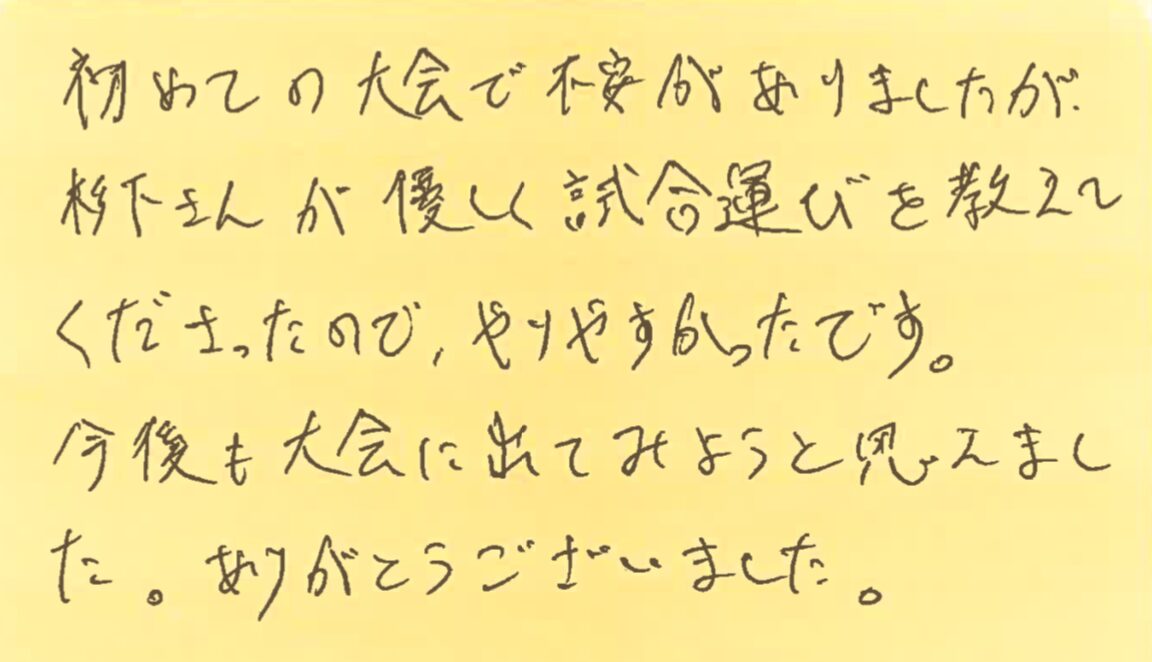 初めての大会で不安がありましたが、
杉下さんが優しく試合運びを教えて
くださったので、やりやすかったです。
今後も大会に出てみようと思えまし
た。ありがとうございました。